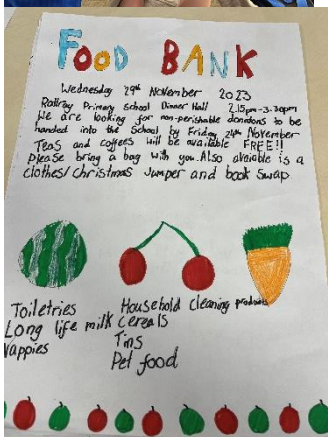 FOOD BANK
Wednesday 29th November 2023
Rattray Primary School Dinner Hall 2.15pm-3.30pm
We are looking for non-perishable donations to be
handed into the School by Friday 24th November
Teas and coffees will be available FREE!!
Please bring a bag with you. Also avaiable is a
clothes/Christmas Jumper and book swap
Toiletries
Long life milk
Nappies
Household cleaning products
Cereals
Tins
Pet food